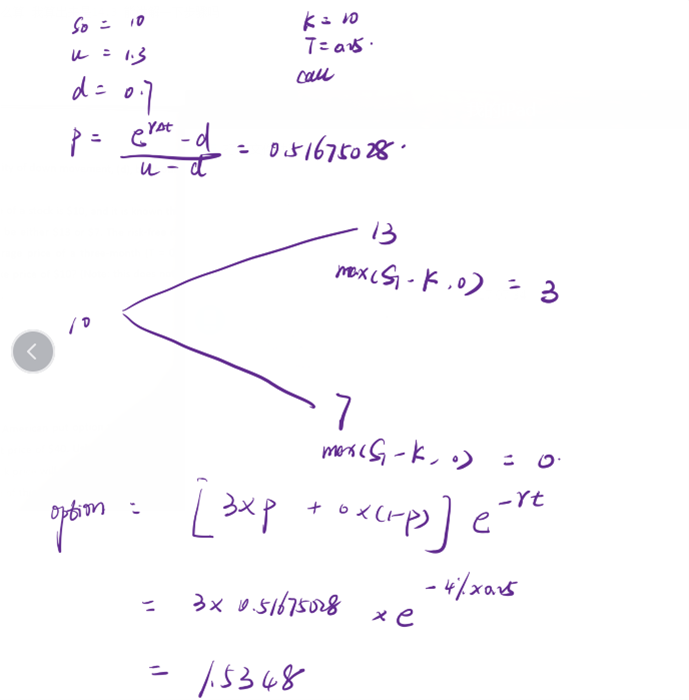 S₀ = 10
K = 10
u = 1.3
T = 0.25.
d = 0.7
call
P = (e^{rΔt} - d) / (u - d) = 0.51675028.
13
max(S₁ - K, 0) = 3
10
7
max(S₁ - K, 0) = 0.
option = [3×p + 0×(1-p)] e^{-rt}
= 3× 0.51675028 × e^{-4%×0.25}
= 1.5348